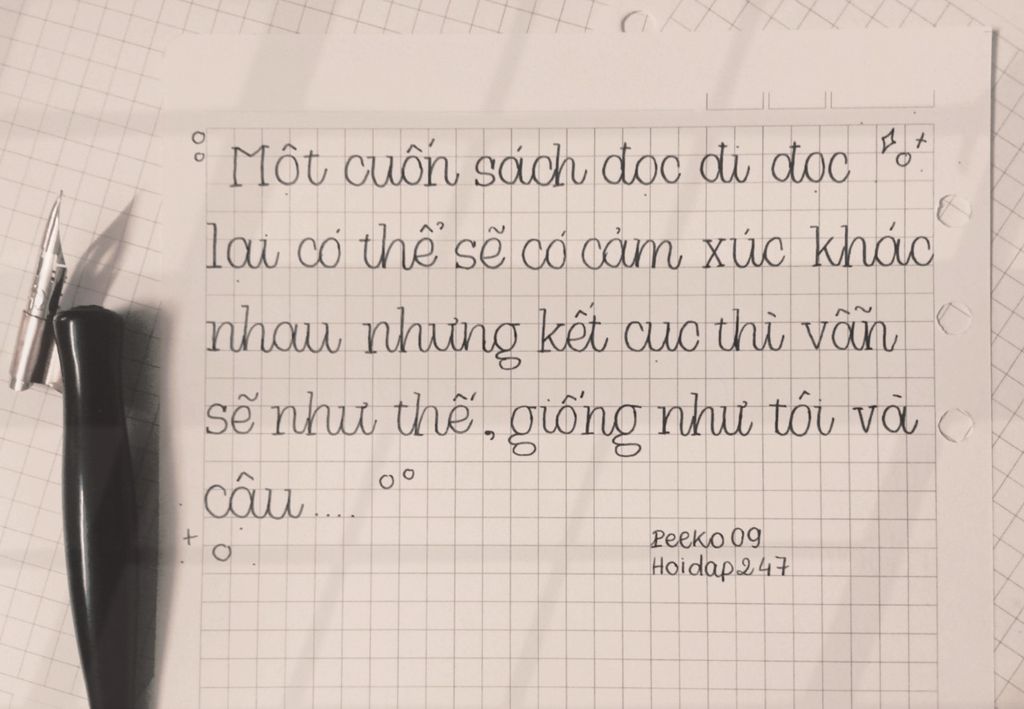 Một cuốn sách đọc đi đọc
lại có thể sẽ có cảm xúc khác
nhau nhưng kết cục thì vẫn
sẽ như thế, giống như tôi và
cậu....
Peeko09
Hoidap247